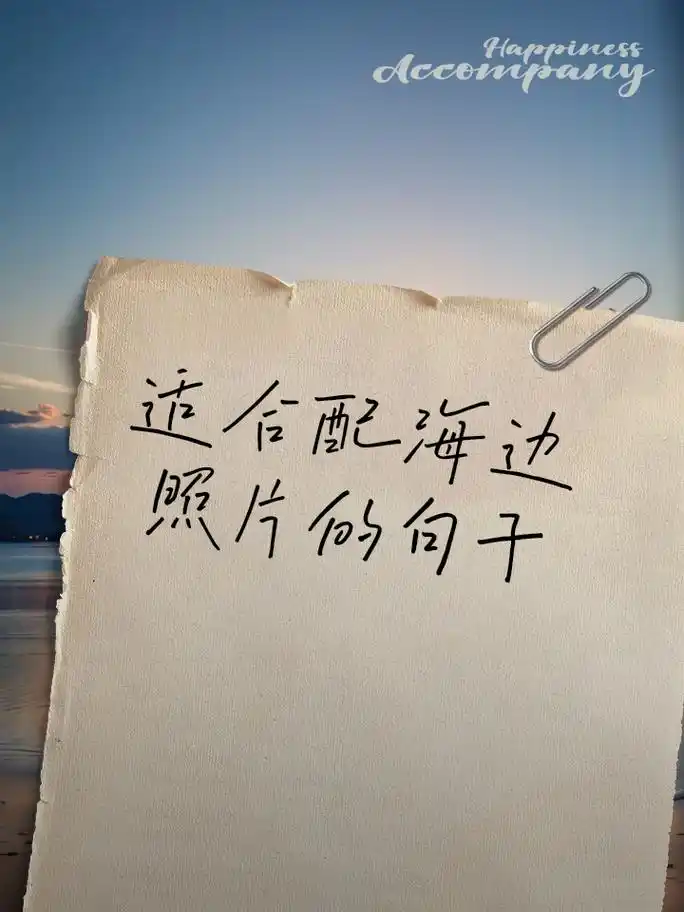 Happiness
Accompany
适合配海边
照片的句子